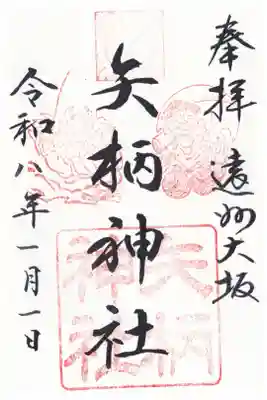 奉拝 遠州大坂
矢柄神社
令和八年一月一日
矢柄神社